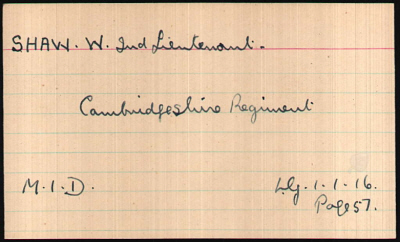 SHAW. W. 2nd Lieutenant.
Cambridgeshire Regiment
M.I.D. L.G. 1.1.16.
Page 57.